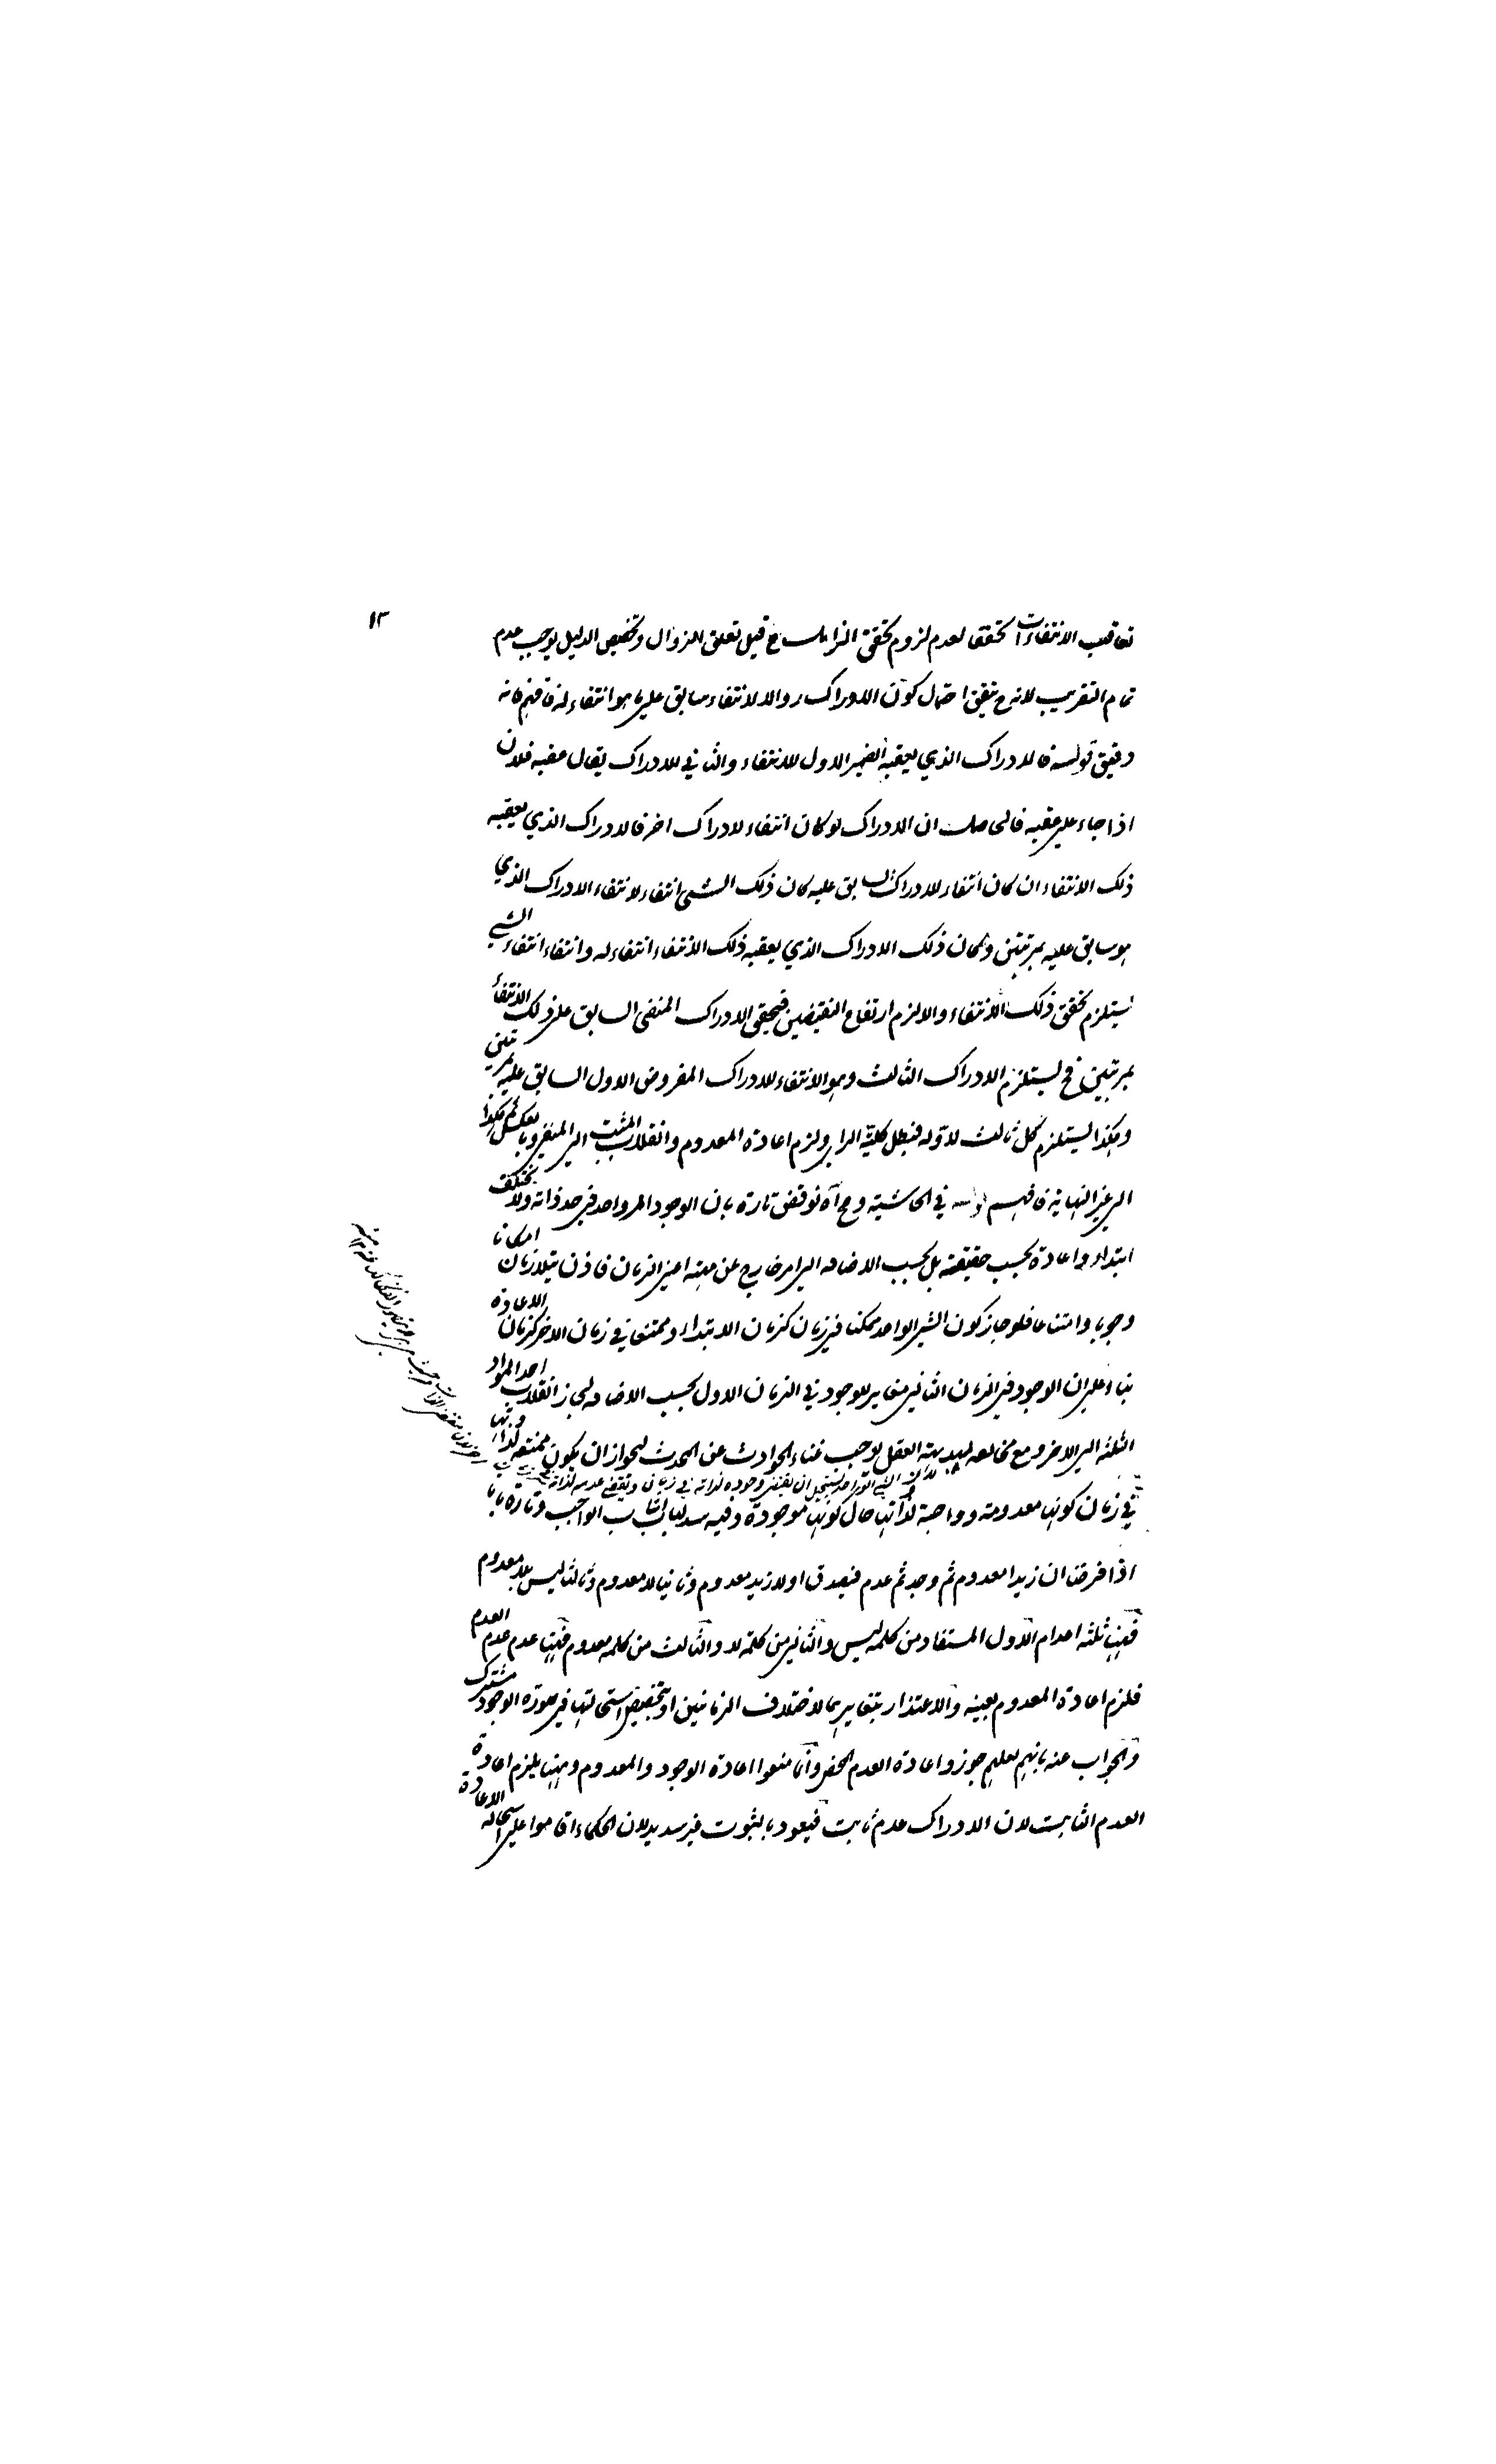 ١٣
تعاقب الانتفاءات تحققا لعدم لزوم تحقق الزايل مع قبل تعلق الزوال وتخصيص الدليل يوجب عدم
تمام التقريب لانه ح يبقى احتمال كون الادراك زوالا لانتفاء سابق عليه هو انتفاء له فافهم فانه
دقيق قوله فالادراك الذي يعقبه الضمير الاول للانتفاء والثاني للادراك يقال عقبه فلان
اذا جاء على عقبه فالحاصل ان الادراك لو كان انتفاء لادراك اخر فالادراك الذي يعقبه
ذلك الانتفاء ان كان انتفاء للادراك السابق عليه كان ذلك الشيء انتفاء لانتفاء الادراك الذي
هو سابق عليه بمرتبتين وكان ذلك الادراك الذي يعقبه ذلك الانتفاء انتفاء له وانتفاء انتفاء الشيء
يستلزم تحقق ذلك الانتفاء والا لزم ارتفاع النقيضين فيتحقق الادراك المنفي السابق على ذلك الانتفاء
بمرتبتين فح يستلزم الادراك الثالث وهو الانتفاء للادراك المفروض الاول السابق عليه بمرتبتين
وهكذا يستلزم كل ثالث لاوله فبطل كلية الرابع ولزم اعادة المعدوم وانقلاب المثبت الى المنفي وبالعكس ثم هكذا
الى غير النهاية فافهم قوله في الحاشية وح آه نوقض تارة بان الوجود امر واحد في حد ذاته ولا يختلف
ابتداء واعادة بحسب حقيقته بل بحسب الاضافة الى امر خارج عن مهيته اعني الزمان فاذن يتلازمان امكانا
وجوبا وامتناعا فلو جاز كون الشيء الواحد ممكنا في زمان كزمان الابتداء وممتنعا في زمان الاخر كزمان الاعادة
بناء على ان الوجود في الزمان الثاني مغاير للوجود في الزمان الاول بحسب الاضافة لجاز انقلاب احد المواد
الثلثة الى الاخر ومع مخالفته لبديهة العقل يوجب غناء الحوادث عن المحدث لجواز ان يكون ممتنعة لذواتها
لان الشيء الواحد يستحيل ان يقتضي وجوده لذاته في زمان ويقتضي عدمه لذاته
في زمان كونها معدومة وواجبة لذاتها حال كونها موجودة وفيه سد لباب اثبات الواجب وتارة بانا
اذا فرضنا ان زيدا معدوم ثم وجد ثم عدم فيصدق اولا زيد معدوم وثانيا لا معدوم وثالثا ليس بلا معدوم
فهنا ثلثة اعدام الاول المستفاد من كلمة ليس والثاني من كلمة لا والثالث من كلمة معدوم فهنا عدم عدم العدم
فلزم اعادة المعدوم بعينه والاعتذار بتغايرهما لاختلاف الزمانين او بتخصيص استحالتها في صورة الوجود مشترك
والجواب عنه بانهم لعلهم جوزوا اعادة العدم المحض وانما منعوا اعادة الوجود والمعدوم وههنا يلزم اعادة
العدم الثابت لان الادراك عدم ثابت فيعود بالثبوت غير سديد لان الحكماء اقاموا على استحالة الاعادة